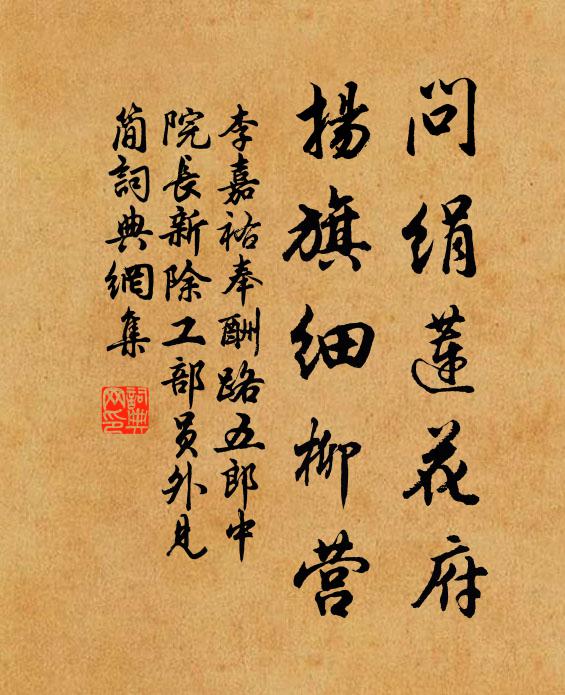 问绢莲花府
扬旗细柳营
李嘉祐奉酬路五郎中
院长新除工部员外见
简詞典網集
詞典网印